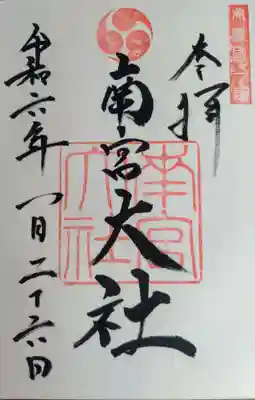 奉拝
南宮大社
南宮大社
令和六年一月二十六日